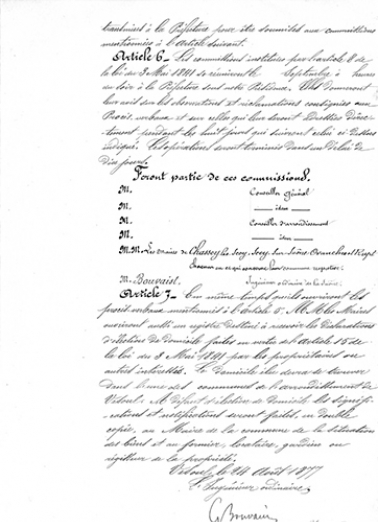 transmises à la Préfecture pour être soumises aux commissions
mentionnées à l'article suivant.
Article 6_ Les commissions instituées par l'article 8 de
la loi du 3 Mai 1841 se réuniront le Septembre à heures
du soir à la Préfecture sous notre Présidence. Elles donneront
leur avis sur les observations et réclamations consignées aux
Procès verbaux et sur celles qui leur seront adressées direc-
tement pendant les huit jours qui suivront celui ci dessus
indiqué. Les opérations seront terminées dans un délai de
dix jours.
Feront partie de ces commissions.
M. Conseiller général
M. _ idem _
M. Conseiller d'arrondissement
M. _ idem _
M.M. Les maires de Chassey les Scey, Scey sur Saône,
Chacun en ce qui concerne leur commune respective.
M. Bouvaist, Ingénieur
Article 7_ En même temps qu'ils ouvriront les
procès verbaux mentionnés à l'Article 5, M.M. les Maires
ouvriront aussi un registre destiné à recevoir les déclarations
d'élection de domicile faites en vertu de l'Article 15 de
la loi du 3 Mai 1841 par les propriétaires ou
autres intéressés. Le domicile élu devra se trouver
dans l'une des communes de l'arrondissement de
Vesoul: A défaut d'élection de domicile les signifi-
cations et notifications seront faites, en double
copie, au Maire de la commune de la situation
des biens et au fermier, locataire, gardien ou
régisseur de la propriété.
Vesoul, le 24 Août 1877
L'Ingénieur ordinaire,